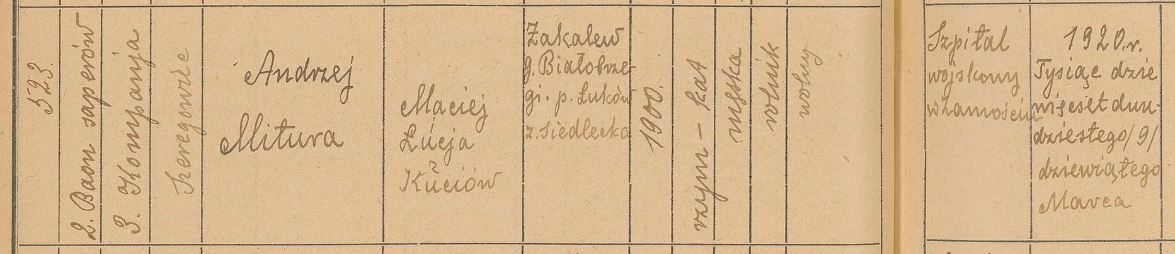 523.
2. Baon saperów
3. Kompanja
Szeregowiec
Andrzej
Mitura
Maciej
Łucja
Kuciów
Zakalew
g. Białobrze-
gi. p. Łuków
z. Siedlecka
1900.
rzym - kat
męska
rolnik
wolny
Szpital
wojskowy
w Zamościu
1920.r.
Tysiąc dzie
więćset dwu-
dziestego /9/
dziewiątego
Marca